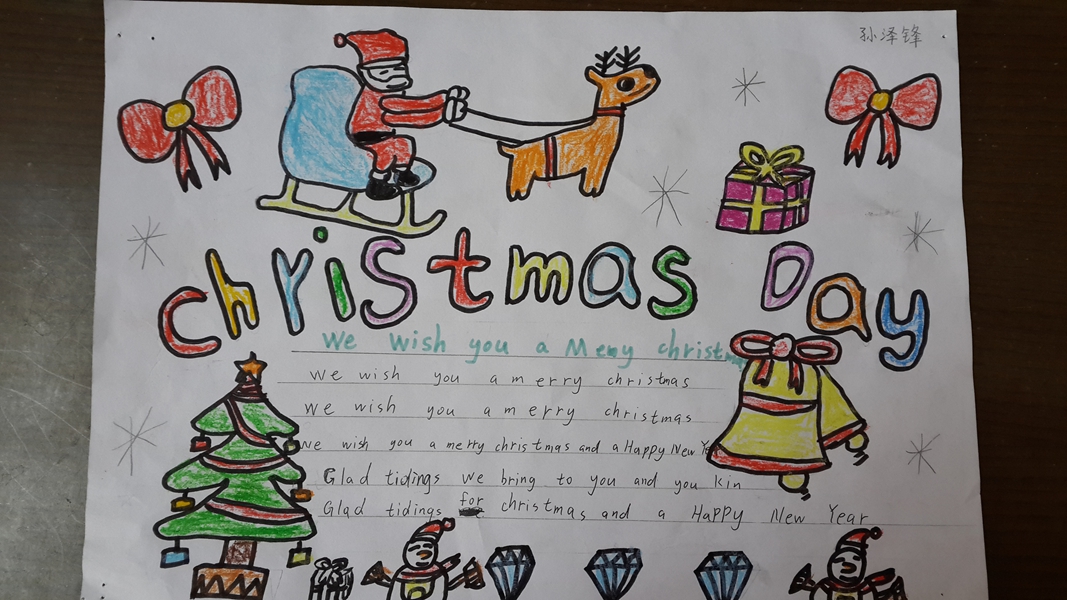 孙泽锋
christmas Day
We wish you a Meny christm
We wish you a merry christmas
We wish you a merry christmas
We wish you a merry christmas and a Happy New Ye
Glad tidings we bring to you and you kin
Glad tidings for christmas and a HaPPy New Year